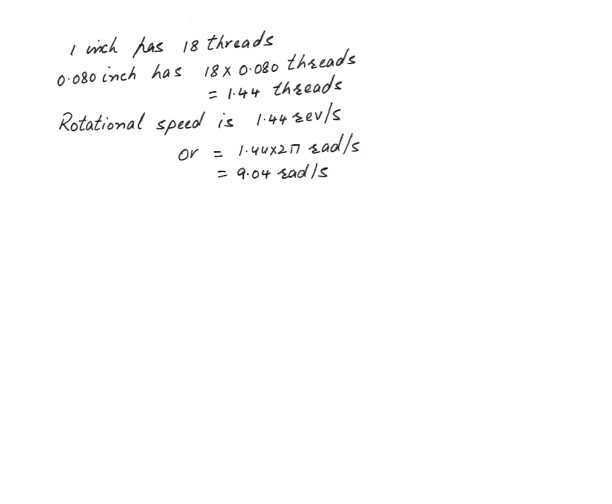 1 inch has 18 threads
0.080 inch has 18 x 0.080 threads
= 1.44 threads
Rotational speed is 1.44 rev/s
or = 1.44x2π rad/s
= 9.04 rad/s